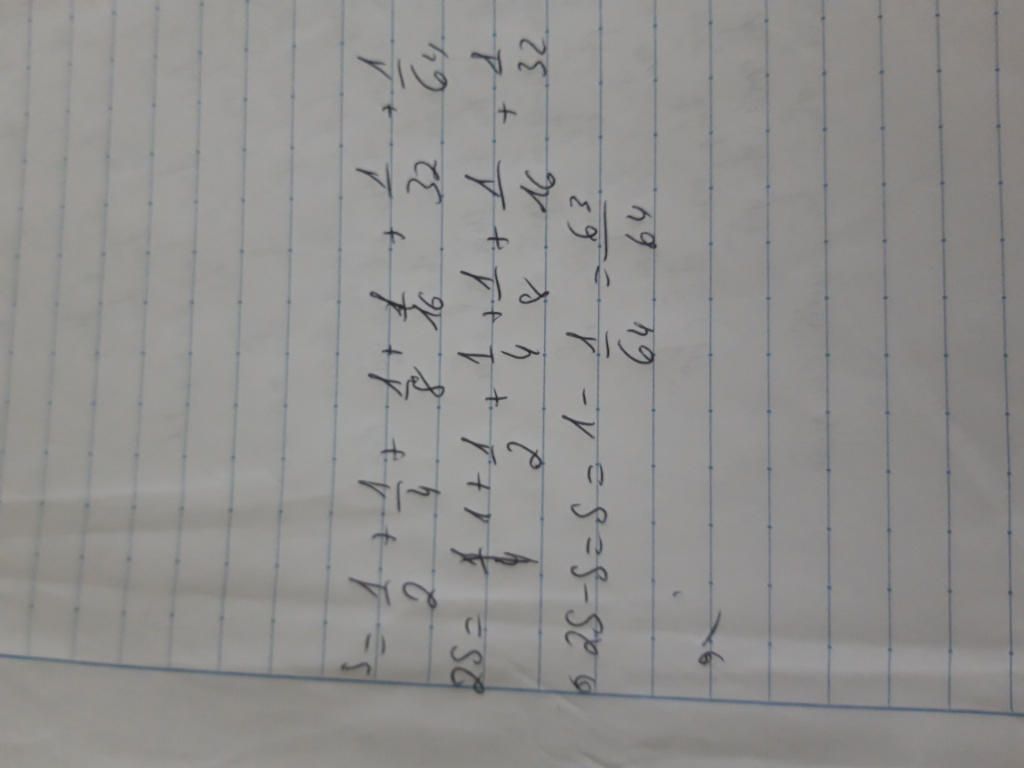 S = 1/2 + 1/4 + 1/8 + 1/16 + 1/32 + 1/64
2S = 1 + 1/2 + 1/4 + 1/8 + 1/16 + 1/32
2S - S = S = 1 - 1/64 = 63/64